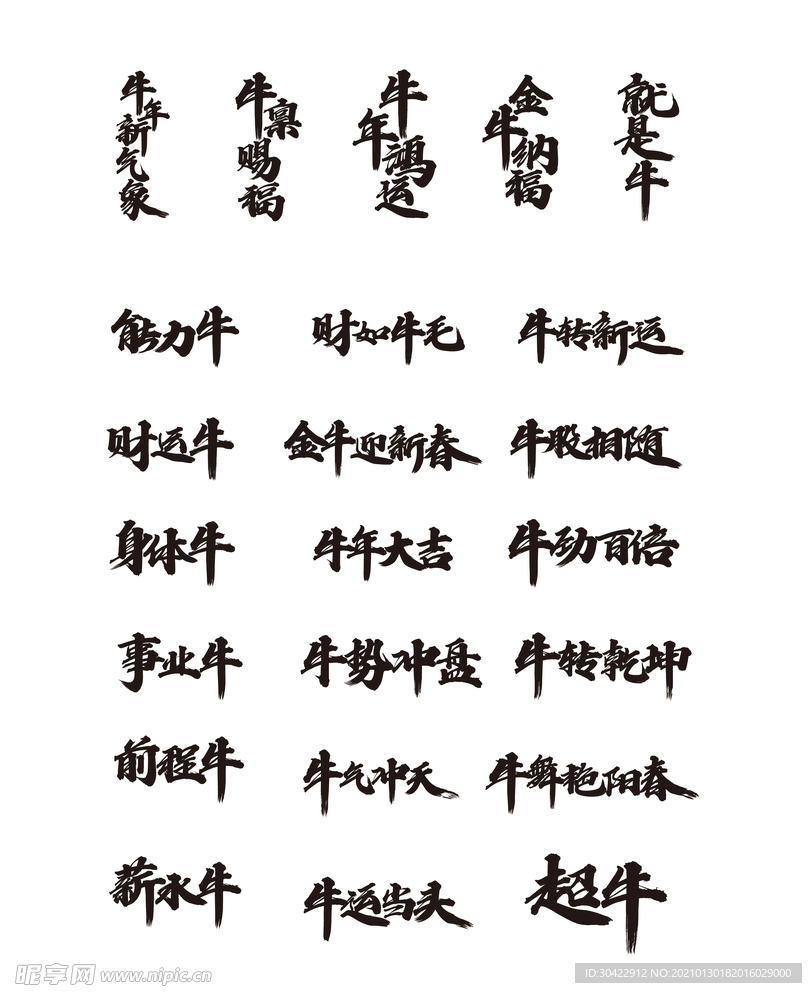 牛年新气象
牛禀赐福
牛年鸿运
金牛纳福
就是牛
能力牛
财如牛毛
牛转新运
财运牛
金牛迎新春
牛股相随
身体牛
牛年大吉
牛劲百倍
事业牛
牛势冲盘
牛转乾坤
前程牛
牛气冲天
牛舞艳阳春
薪水牛
牛运当头
超牛
昵享网 www.nipic.cn
ID:30422912 NO:20210130182016029000